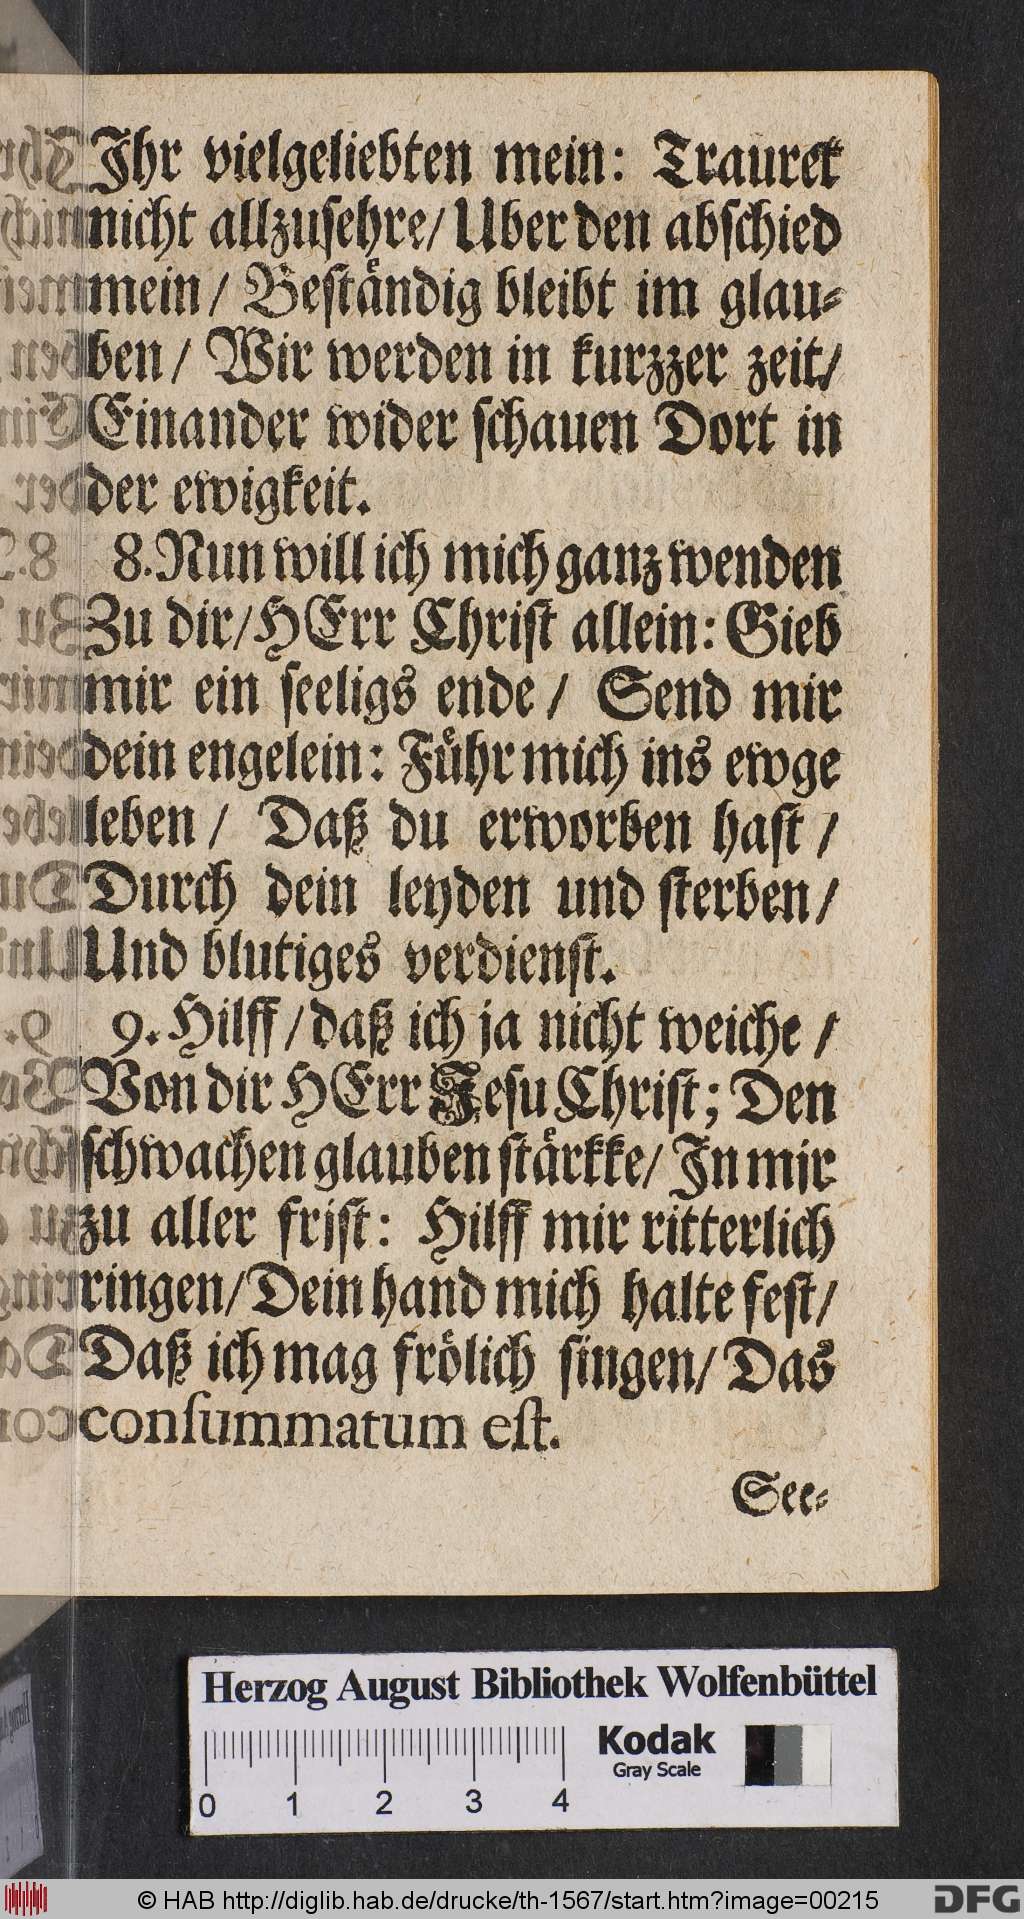 Ihr vielgeliebten mein: Trauret
nicht allzusehre/ Uber den abschied
mein/ Beständig bleibt im glau-
ben/ Wir werden in kurzzer zeit/
Einander wider schauen Dort in
der ewigkeit.
8. Nun will ich mich ganz wenden
Zu dir/ HErr Christ allein: Gieb
mir ein seeligs ende/ Send mir
dein engelein: Führ mich ins ewge
leben/ Daß du erworben hast/
Durch dein leyden und sterben/
Und blutiges verdienst.
9. Hilff/ daß ich ja nicht weiche/
Von dir HErr Jesu Christ; Den
schwachen glauben stärkke/ In mir
zu aller frist: Hilff mir ritterlich
ringen/ Dein hand mich halte fest/
Daß ich mag frölich singen/ Das
consummatum est.
See-
Herzog August Bibliothek Wolfenbüttel
Kodak
Gray Scale
0 1 2 3 4
© HAB http://diglib.hab.de/drucke/th-1567/start.htm?image=00215
DFG